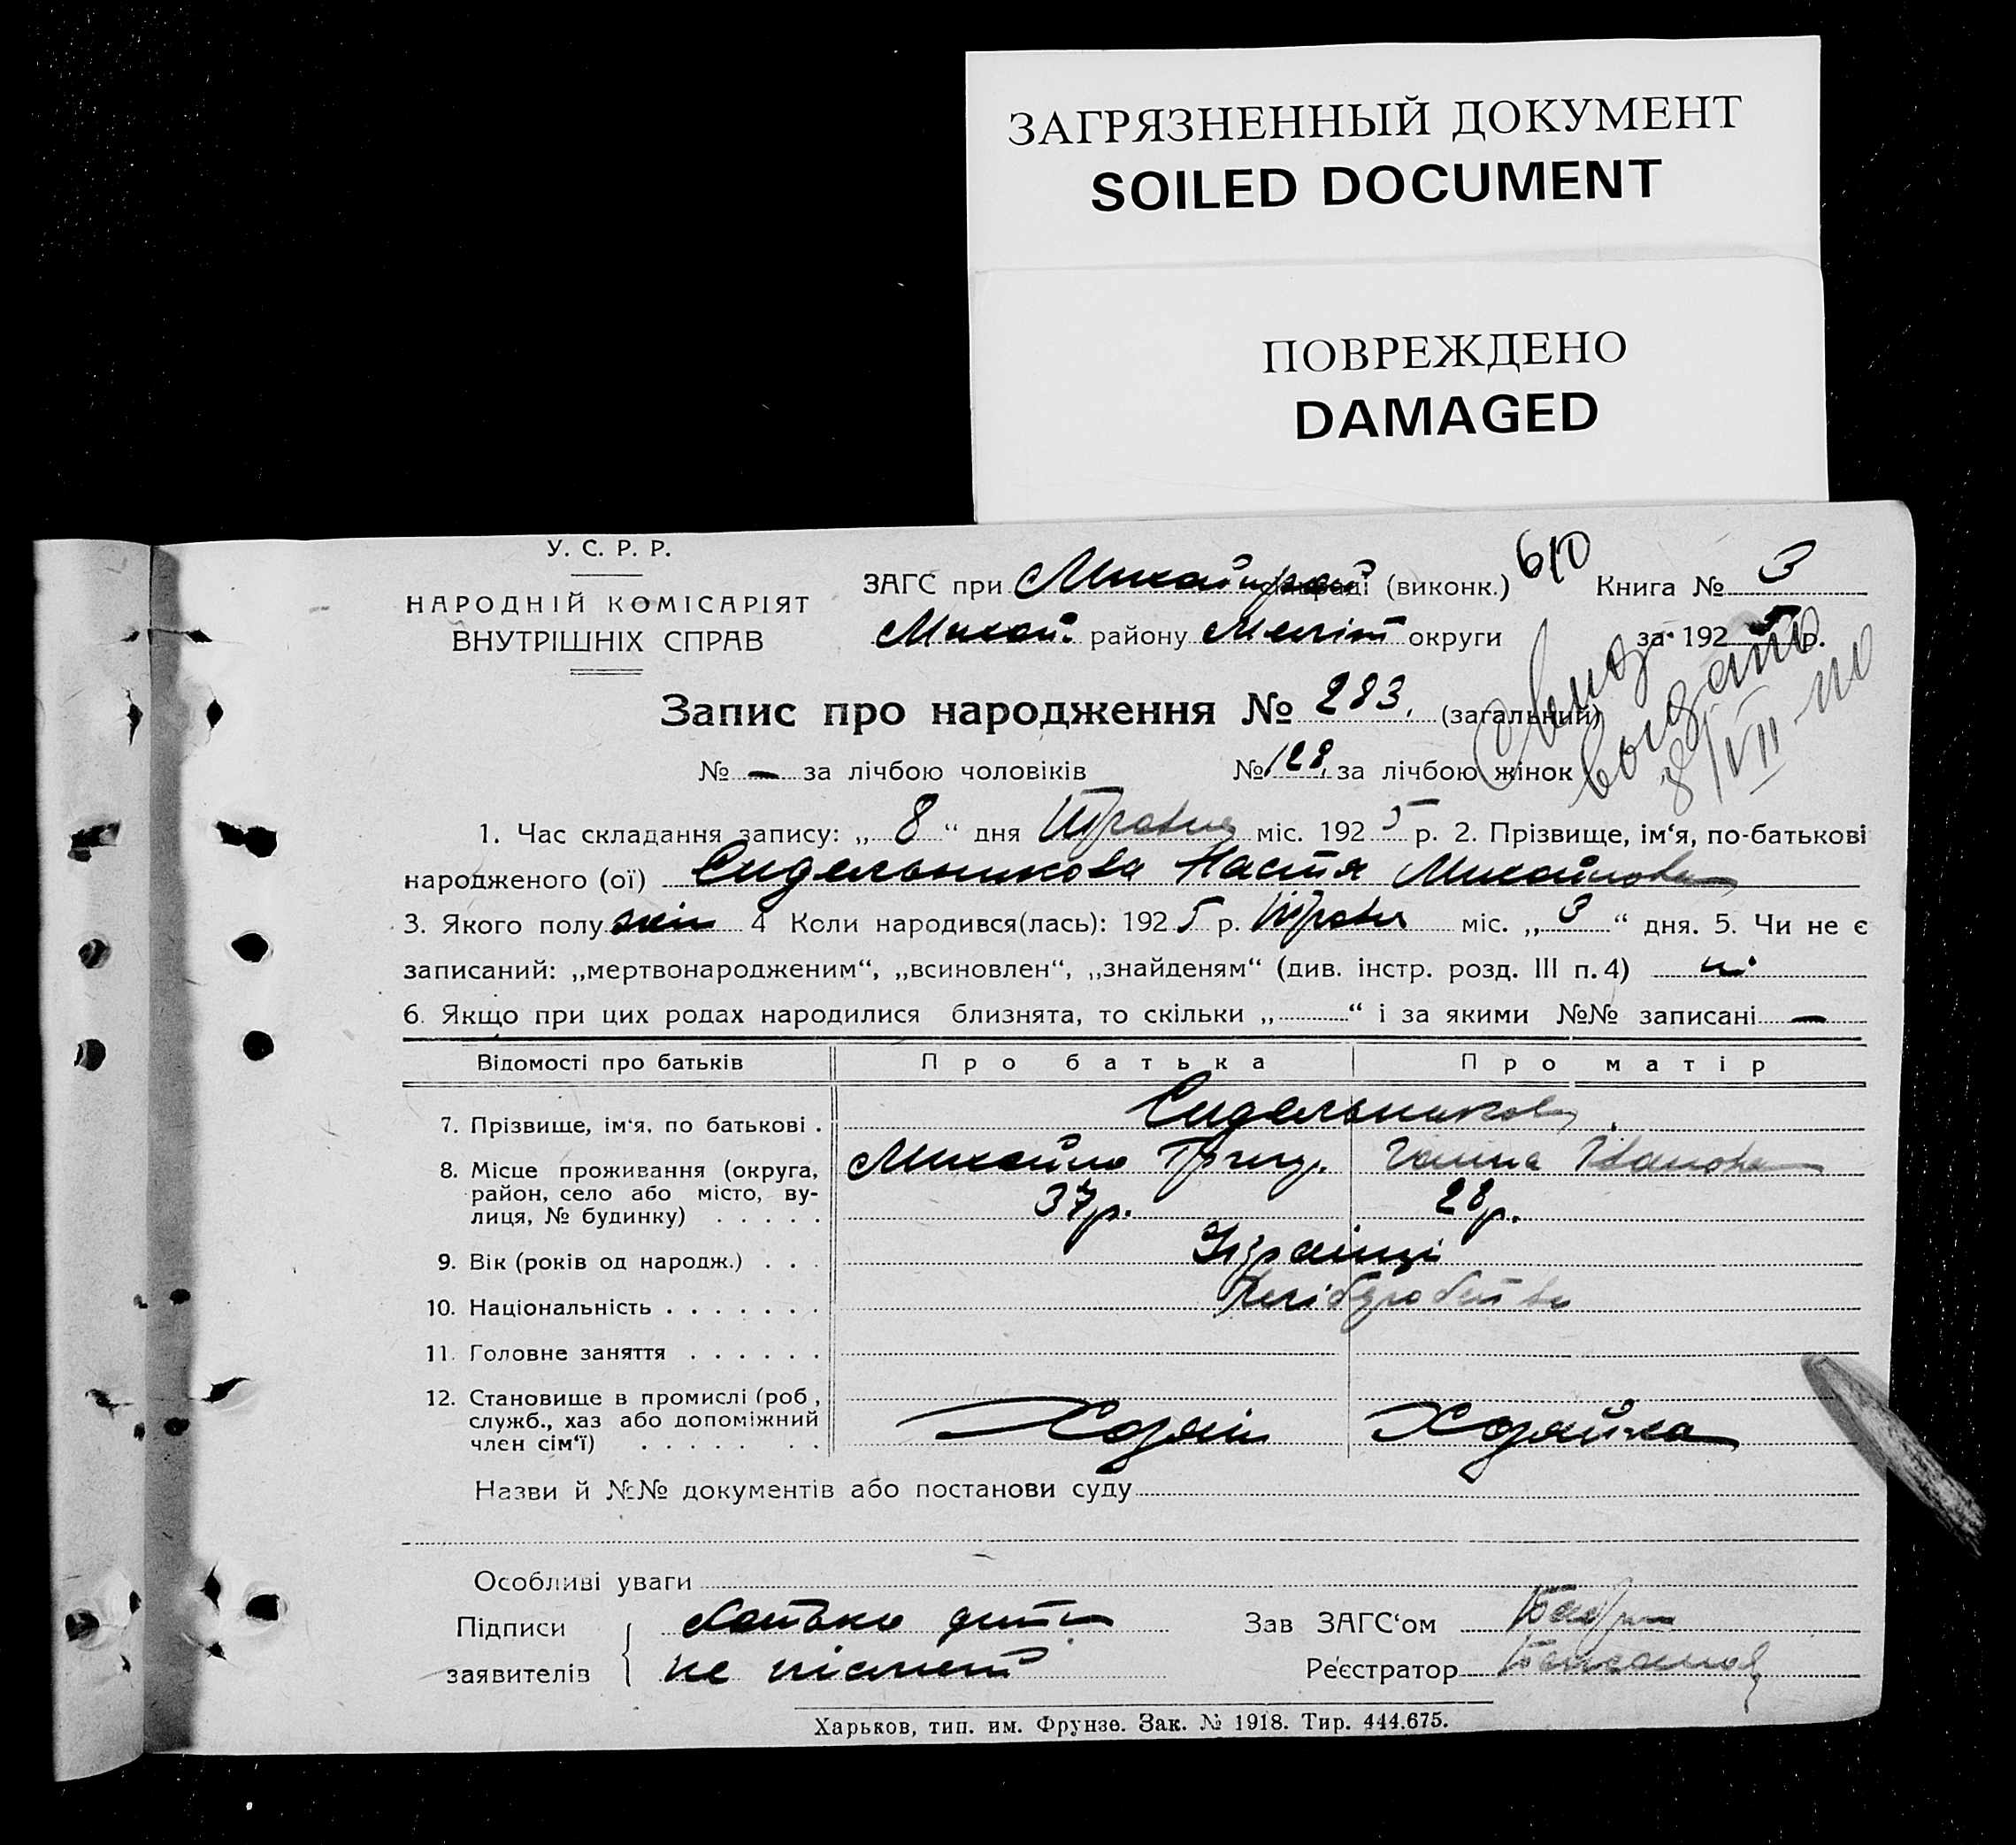 ЗАГРЯЗНЕННЫЙ ДОКУМЕНТ
SOILED DOCUMENT
ПОВРЕЖДЕНО
DAMAGED
У. С. Р. Р.
НАРОДНІЙ КОМІСАРІЯТ
ВНУТРІШНІХ СПРАВ
ЗАГС при (виконк.) 610 Книга № 3
Михай. району Меліт округи за 192 5 р.
Запис про народження № 283. (загальний)
№ — за лічбою чоловіків № 128. за лічбою жінок
выдано
8/VII-40
1. Час складання запису: „ 8 “ дня Травня міс. 192 5 р. 2. Прізвище, ім‘я, по-батькові
народженого (ої) Сидельникова Настя Михайловна
3. Якого полу жін 4 Коли народився(лась): 192 5 р. Травня міс. „ 3 “ дня. 5. Чи не є
записаний: „мертвонародженим“, „всиновлен“, „знайденям“ (див. інстр. розд. III п. 4) ні
6. Якщо при цих родах народилися близнята, то скільки „ “ і за якими №№ записані —
Відомості про батьків Про батька Про матір
7. Прізвище, ім‘я, по батькові .
8. Місце проживання (округа,
район, село або місто, ву-
лиця, № будинку) . . . . .
9. Вік (років од народж.) . . .
10. Національність . . . . . . .
11. Головне заняття . . . . . .
12. Становище в промислі (роб,
служб., хаз або допоміжний
член сім‘ї) . . . . . . .
Сидельникови
Михайло Григ. Ганна Івановна
37р. 28р.
Українці
Хліборобство
Хозяїн Хозяйка
Назви й №№ документів або постанови суду
Особливі уваги
Підписи батько дити Зав ЗАГС‘ом
заявителів не писмен Реєстратор
Харьков, тип. им. Фрунзе. Зак. № 1918. Тир. 444.675.